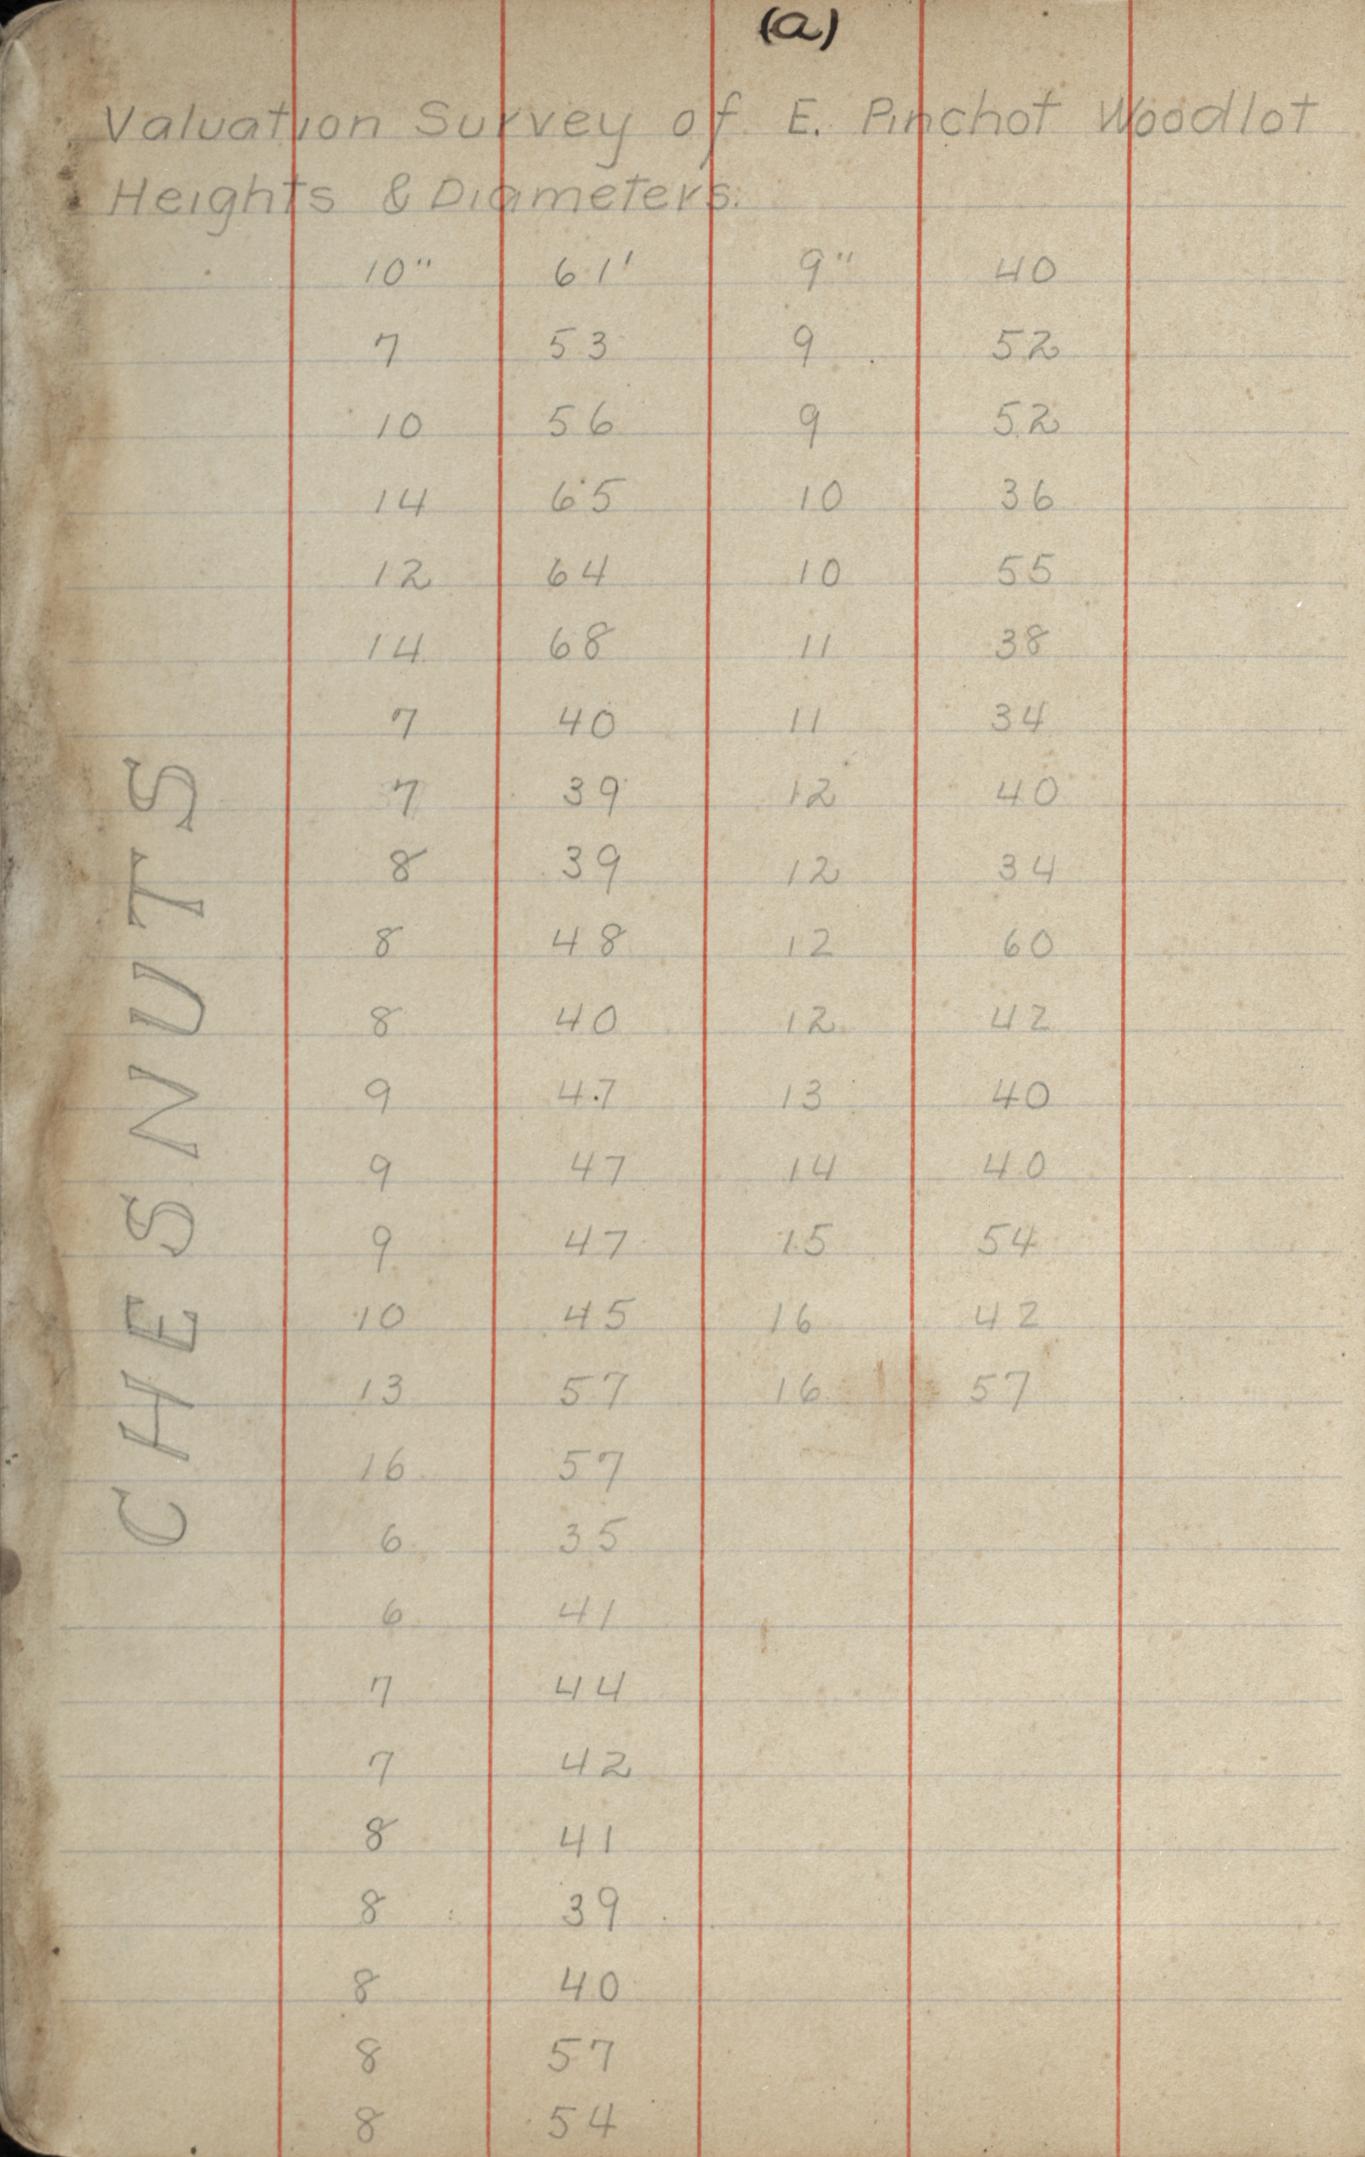 (a)
Valuation Survey of E. Pinchot Woodlot
Heights & Diameters.
10" 61' 9" 40
7 53 9 52
10 56 9 52
14 65 10 36
12 64 10 55
14 68 11 38
7 40 11 34
7 39 12 40
8 39 12 34
8 48 12 60
8 40 12 42
9 47 13 40
9 47 14 40
9 47 15 54
10 45 16 42
13 57 16 57
16 57
6 35
6 41
7 44
7 42
8 41
8 39
8 40
8 57
8 54
CHESNUTS